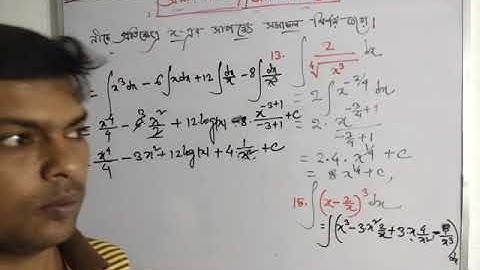 নীচে প্রতিক্ষেত্রে x এর সাপেক্ষে সমাকল নির্ণয় করো।
= ∫x³dx - 6∫xdx + 12∫dx/x - 8∫dx/x³
= x⁴/4 - 6 x²/2 + 12 log|x| - 8 · x⁻³⁺¹/-3+1 + c
= x⁴/4 - 3x² + 12 log|x| + 4 1/x² + c
13. ∫ 2/∜x³ dx
= 2∫x^-3/4 dx
= 2 · x^(-3/4+1)/(-3/4+1)
= 2·4· x^¼ + c
= 8 x^¼ + c,
15. ∫(x - 2/x)³ dx
= ∫(x³ - 3x² 2/x + 3x 4/x² - 8/x³) dx